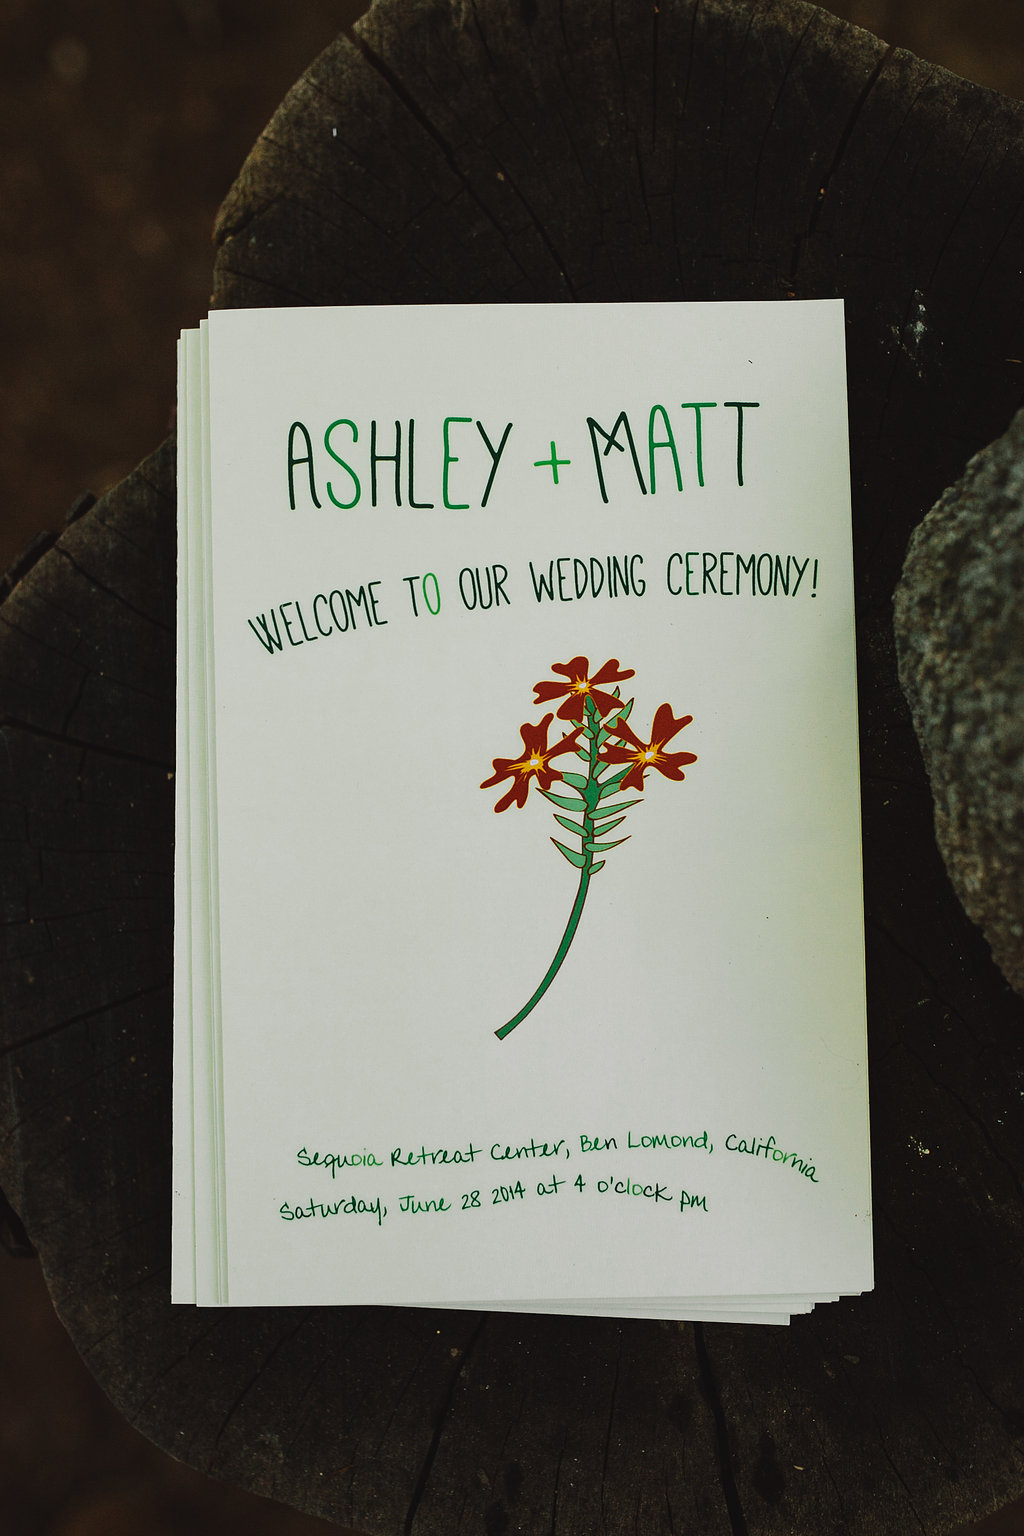 ASHLEY + MATT
WELCOME TO OUR WEDDING CEREMONY!
Sequoia Retreat Center, Ben Lomond, California
Saturday, June 28 2014 at 4 o'clock pm